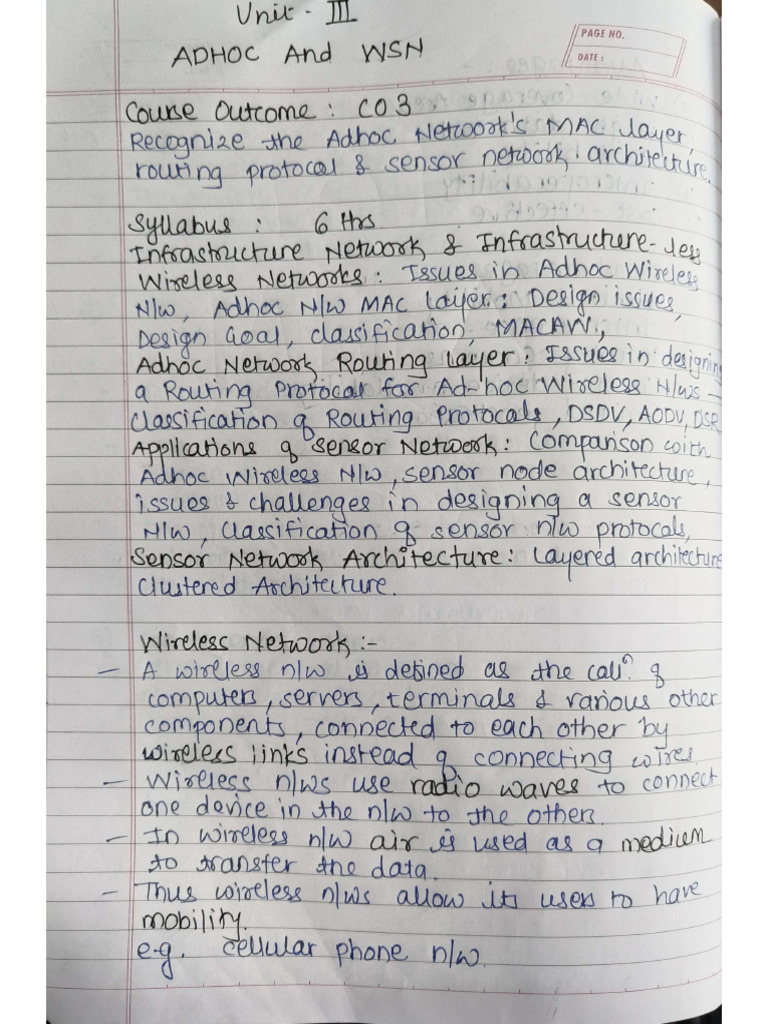 Unit - III
ADHOC And WSN
PAGE NO.
DATE:
Course Outcome : CO3
Recognize the Adhoc Network's MAC layer,
routing protocol & sensor network architecture.
Syllabus : 6 Hrs
Infrastructure Network & Infrastructure-less
Wireless Networks : Issues in Adhoc Wireless
N/w, Adhoc N/w MAC Layer : Design issues,
Design Goal, classification, MACAW,
Adhoc Network Routing Layer : Issues in designing
a Routing Protocal for Ad-hoc Wireless N/ws -
Classification of Routing Protocals, DSDV, AODV, DSR
Applications of Sensor Network : Comparison with
Adhoc Wireless N/w, sensor node architecture,
issues & challenges in designing a sensor
N/w, Classification of sensor n/w protocals,
Sensor Network Architecture : Layered architecture
Clustered Architecture.
Wireless Network :-
- A wireless n/w is defined as the collⁿ of
computers, servers, terminals & various other
components, connected to each other by
wireless links instead of connecting wires.
- Wireless n/ws use radio waves to connect
one device in the n/w to the others.
- In wireless n/w air is used as a medium
to transfer the data.
- Thus wireless n/ws allow its users to have
mobility.
e.g. cellular phone n/w.